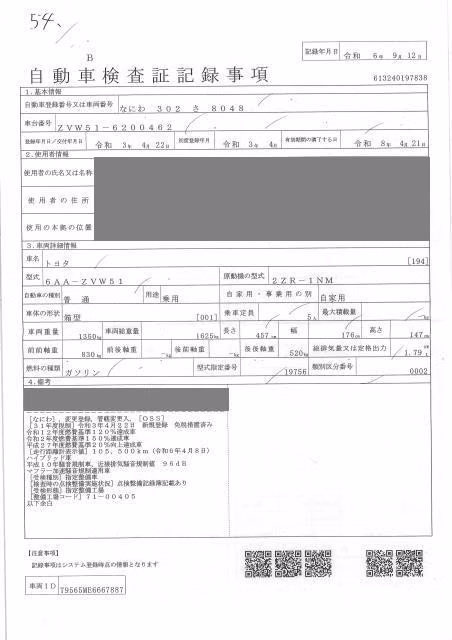 54
B
記録年月日 令和 6年 9月 12日
自動車検査証記録事項
613240197838
1.基本情報
自動車登録番号又は車両番号 なにわ 302 さ 8048
車台番号 ZVW51-6200462
登録年月日/交付年月日 令和 3年 4月 22日 初度登録年月 令和 3年 4月 有効期間の満了する日 令和 8年 4月 21日
2.使用者情報
使用者の氏名又は名称
使用者の住所
使用の本拠の位置
3.車両詳細情報
車名 トヨタ [194]
型式 6AA-ZVW51 原動機の型式 2ZR-1NM
自動車の種別 普通 用途 乗用 自家用・事業用の別 自家用
車体の形状 箱型 [001] 乗車定員 5人 最大積載量 -kg
車両重量 1350kg 車両総重量 1625kg 長さ 457cm 幅 176cm 高さ 147cm
前前軸重 830kg 前後軸重 -kg 後前軸重 -kg 後後軸重 520kg 総排気量又は定格出力 1.79
燃料の種類 ガソリン 型式指定番号 19756 類別区分番号 0002
4.備考
[なにわ],変更登録,管轄変更入,[OSS]
[31年度税制]令和3年4月22日 新規登録 免税措置済み
令和12年度燃費基準120%達成車
令和2年度燃費基準150%達成車
平成27年度燃費基準20%向上達成車
[走行距離計表示値]105,500km(令和6年4月8日)
ハイブリッド車
平成10年騒音規制車,近接排気騒音規制値 96dB
マフラー加速騒音規制適用車
[受検種別]指定整備車
[検査時の点検整備実施状況]点検整備記録簿記載あり
[受検形態]指定整備工場
[整備工場コード]71-00405
以下余白
【注意事項】
記録事項はシステム登録時点の情報となります
車両ID T9565ME6667887